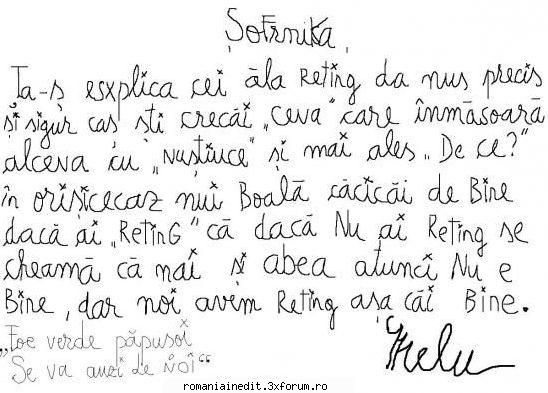 ȘoFrnika
Ta-s esxplica cei ăla Reting da nus precis
și sigur cas sti crecăi „Ceva" care înmăsoară
alceva cu „nuștiuce" și mai ales „De ce?"
în orisicecaz nui Boală căcicăi de Bine
dacă ai „RetinG" că dacă Nu ai Reting se
cheamă că mai și abea atunci Nu e
Bine, dar noi avem Reting așa căi Bine.
„Foe verde păpusoi
Se va auzi de NOI"
Ghelu
romaniainedit.3xforum.ro